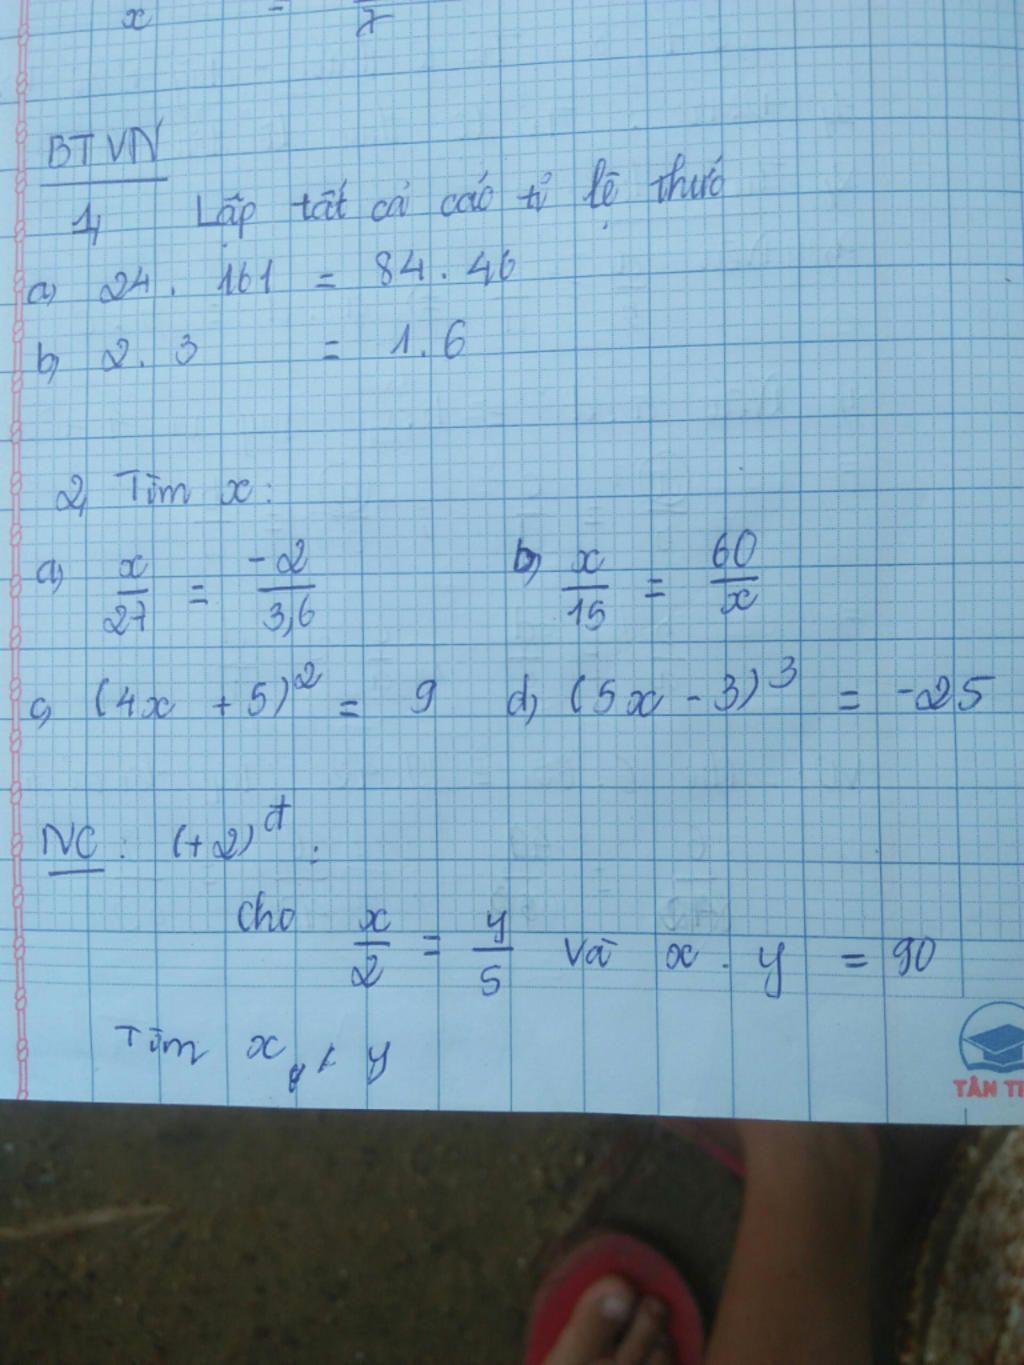 x = /7
BTVN
1, Lập tất cả các tỉ lệ thức
a, 24 . 161 = 84 . 46
b, 2 . 3 = 1 . 6
2, Tìm x :
a, x/27 = -2/3,6 b, x/15 = 60/x
c, (4x + 5)² = 9 d, (5x - 3)³ = -25
NC : (+2)đ :
Cho x/2 = y/5 và x . y = 90
Tìm x, y
TÂN TI